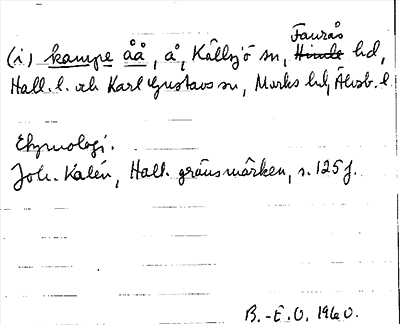 Faurås
(i) kampe åå, å, Källsjö sn, Himle hd,
Hall. l. och Karl Gustavs sn, Marks hd, Älvsb. l.
Etymologi.
Joh. Kalén, Hall. gränsmärken, s. 125 f.
B.-E.O. 1960.